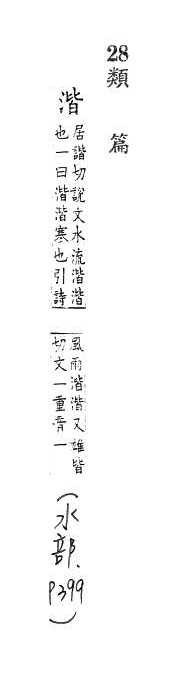 28類篇
湝
居諧切說文水流湝湝
也一曰湝湝寒也引詩
風雨湝湝又雄皆
切文一重音一
(水部、P399)